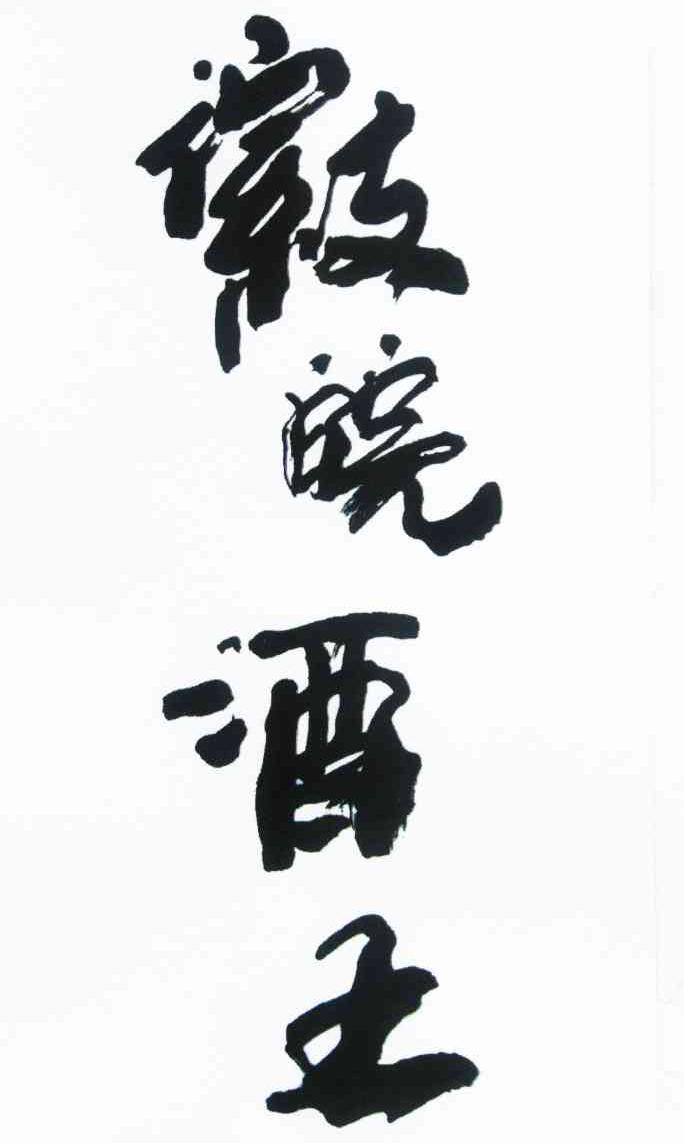 徽皖酒王